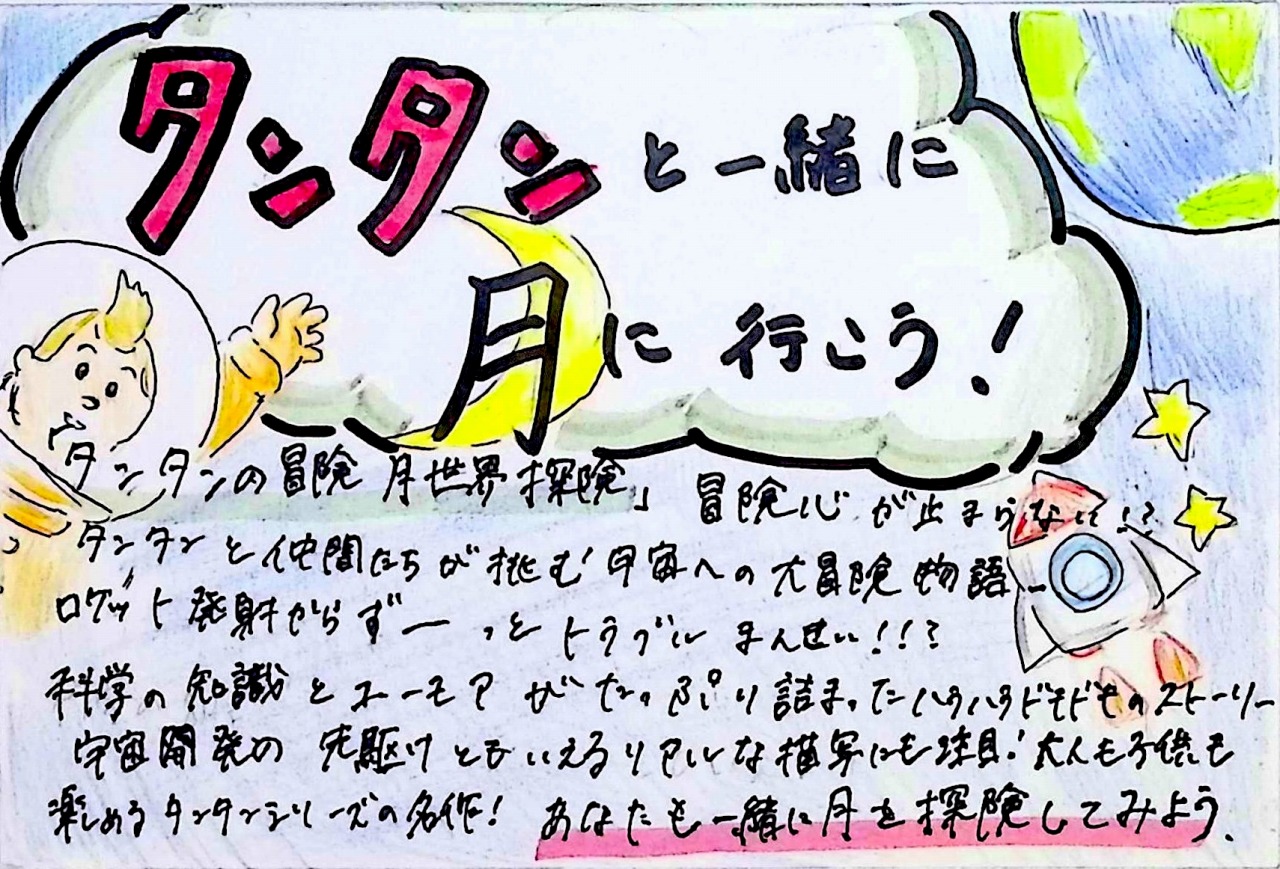 タンタンと一緒に
月に行こう!
タンタンの冒険 月世界探険」 冒険心が止まらない!?
タンタンと仲間たちが挑む宇宙への大冒険物語ー
ロケット発射からずーっとトラブルまんさい!!?
科学の知識とユーモアがたっぷり詰まったハラハラドキドキのストーリー
宇宙開発の先駆けともいえるリアルな描写にも注目!大人も子供も
楽しめるタンタンシリーズの名作! あなたも一緒に月を探険してみよう.